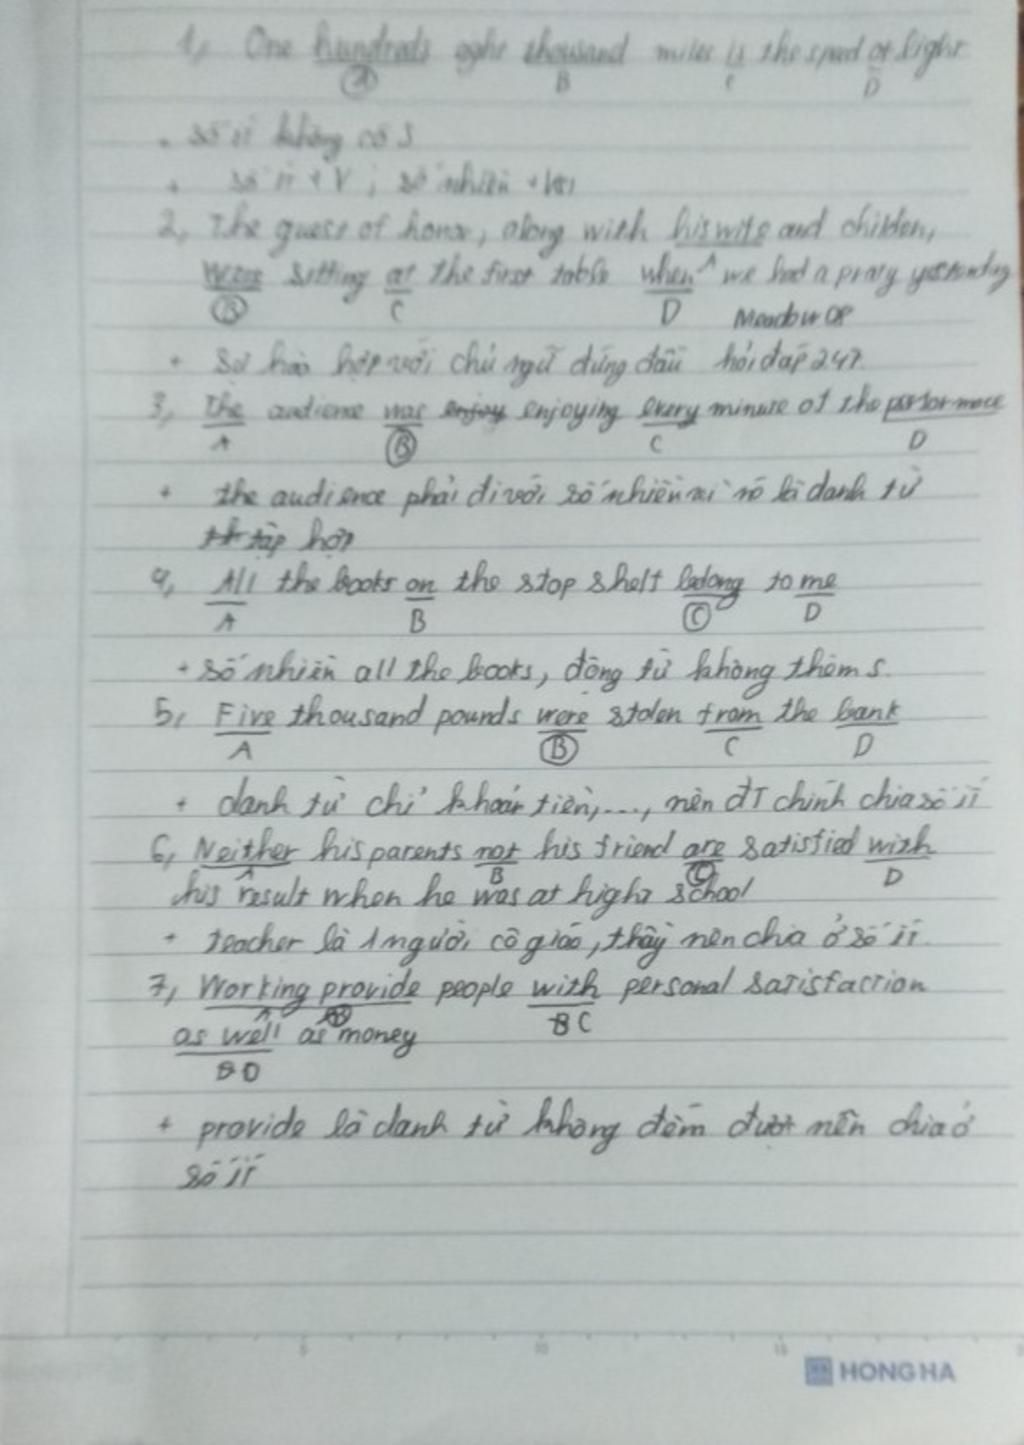 1, One hundreds eght thousand miles is the speed of light
A B C D
. Số ít không có s
+ số ít + V ; số nhiều +
2, The guest of honor, along with his wife and childen,
A
were sitting at the first table when we had a praty yesterday
B C D
+ Sự hòa hợp với chủ ngữ đứng đầu hỏi đáp 247
3, The audience was enjoy enjoying every minute of the performace
A B C D
+ the audience phải đi với số nhiều vì nó là danh từ
tập hợp
4, All the books on the stop shelf belong to me
A B C D
+ số nhiều all the books, động từ không thêm s.
5, Five thousand pounds were stolen from the bank
A B C D
+ danh từ chỉ khoản tiền,..., nên ĐT chính chia số ít
6, Neither his parents not his friend are satisfied with
A B C D
his result when he was at hight school
+ teacher là 1 người cô giáo, thầy nên chia ở số ít
7, Working provide people with personal satisfaction
A B C
as well as money
D
+ provide là danh từ không đếm được nên chia ở
số ít
5 10 15
HONG HA